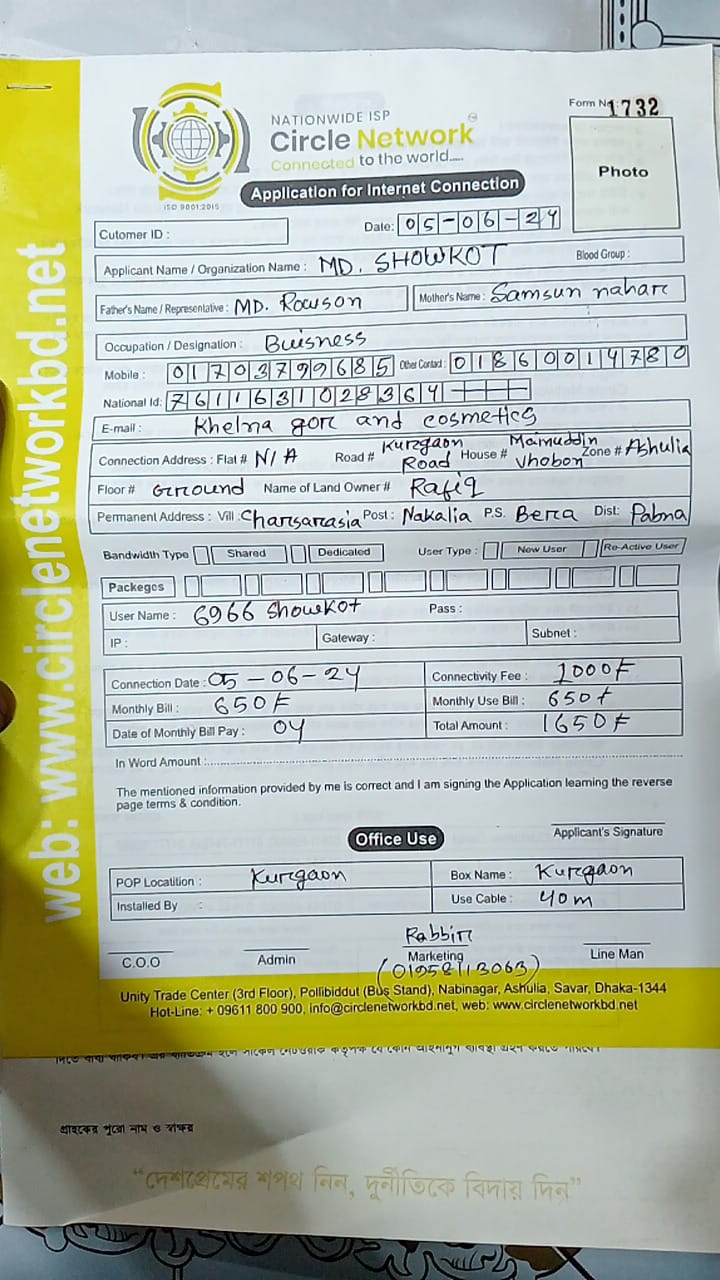 Form No: 1732
NATIONWIDE ISP
Circle Network
Connected to the world.....
ISO 9001:2015
Application for Internet Connection
Photo
Cutomer ID :
Date: 05-06-24
Applicant Name / Organization Name : MD. SHOWKOT Blood Group :
Father's Name / Representative : MD. Rowson Mother's Name : Samsun nahar
Occupation / Designation : Buisness
Mobile : 01703799685 Other Contact : 01860014780
National Id: 7611631028364
E-mail : Khelna gor and cosmetics
Connection Address : Flat # N/A Road # Kurgaon Road House # Mainuddin Vhobon Zone # Ashulia
Floor # Ground Name of Land Owner # Rafiq
Permanent Address : Vill : Charsarasia Post : Nakalia P.S. Bera Dist: Pabna
Bandwidth Type Shared Dedicated User Type : New User Re-Active User
Packeges
User Name : 6966 Showkot Pass :
IP : Gateway : Subnet :
Connection Date : 05-06-24 Connectivity Fee : 1000৳
Monthly Bill : 650৳ Monthly Use Bill : 650৳
Date of Monthly Bill Pay : 04 Total Amount : 1650৳
In Word Amount :
The mentioned information provided by me is correct and I am signing the Application learning the reverse
page terms & condition.
Applicant's Signature
Office Use
POP Locatition : Kurgaon Box Name : Kurgaon
Installed By : Use Cable : 40m
Rabbir
C.O.O Admin Marketing Line Man
(01958113063)
Unity Trade Center (3rd Floor), Pollibiddut (Bus Stand), Nabinagar, Ashulia, Savar, Dhaka-1344
Hot-Line: + 09611 800 900, info@circlenetworkbd.net, web: www.circlenetworkbd.net
web: www.circlenetworkbd.net
গ্রাহকের পুরো নাম ও স্বাক্ষর
“দেশপ্রেমের শপথ নিন, দুর্নীতিকে বিদায় দিন”